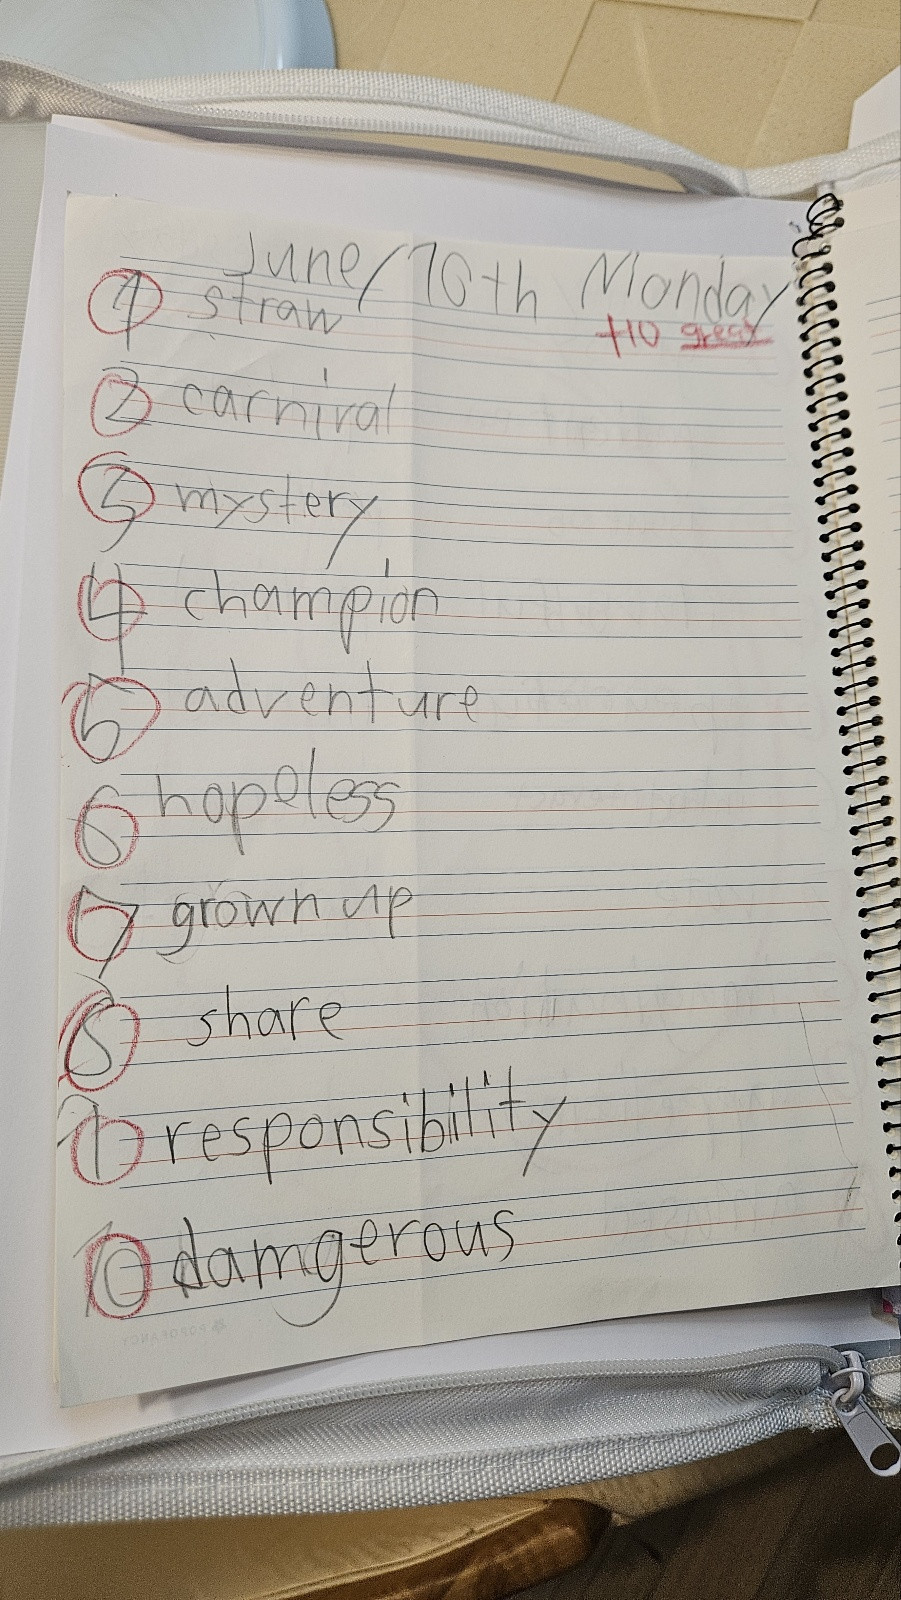 June/10th Monday
① straw
+10 great
② carnival
③ mystery
④ champion
⑤ adventure
⑥ hopeless
⑦ grown up
⑧ share
⑨ responsibility
⑩ damgerous